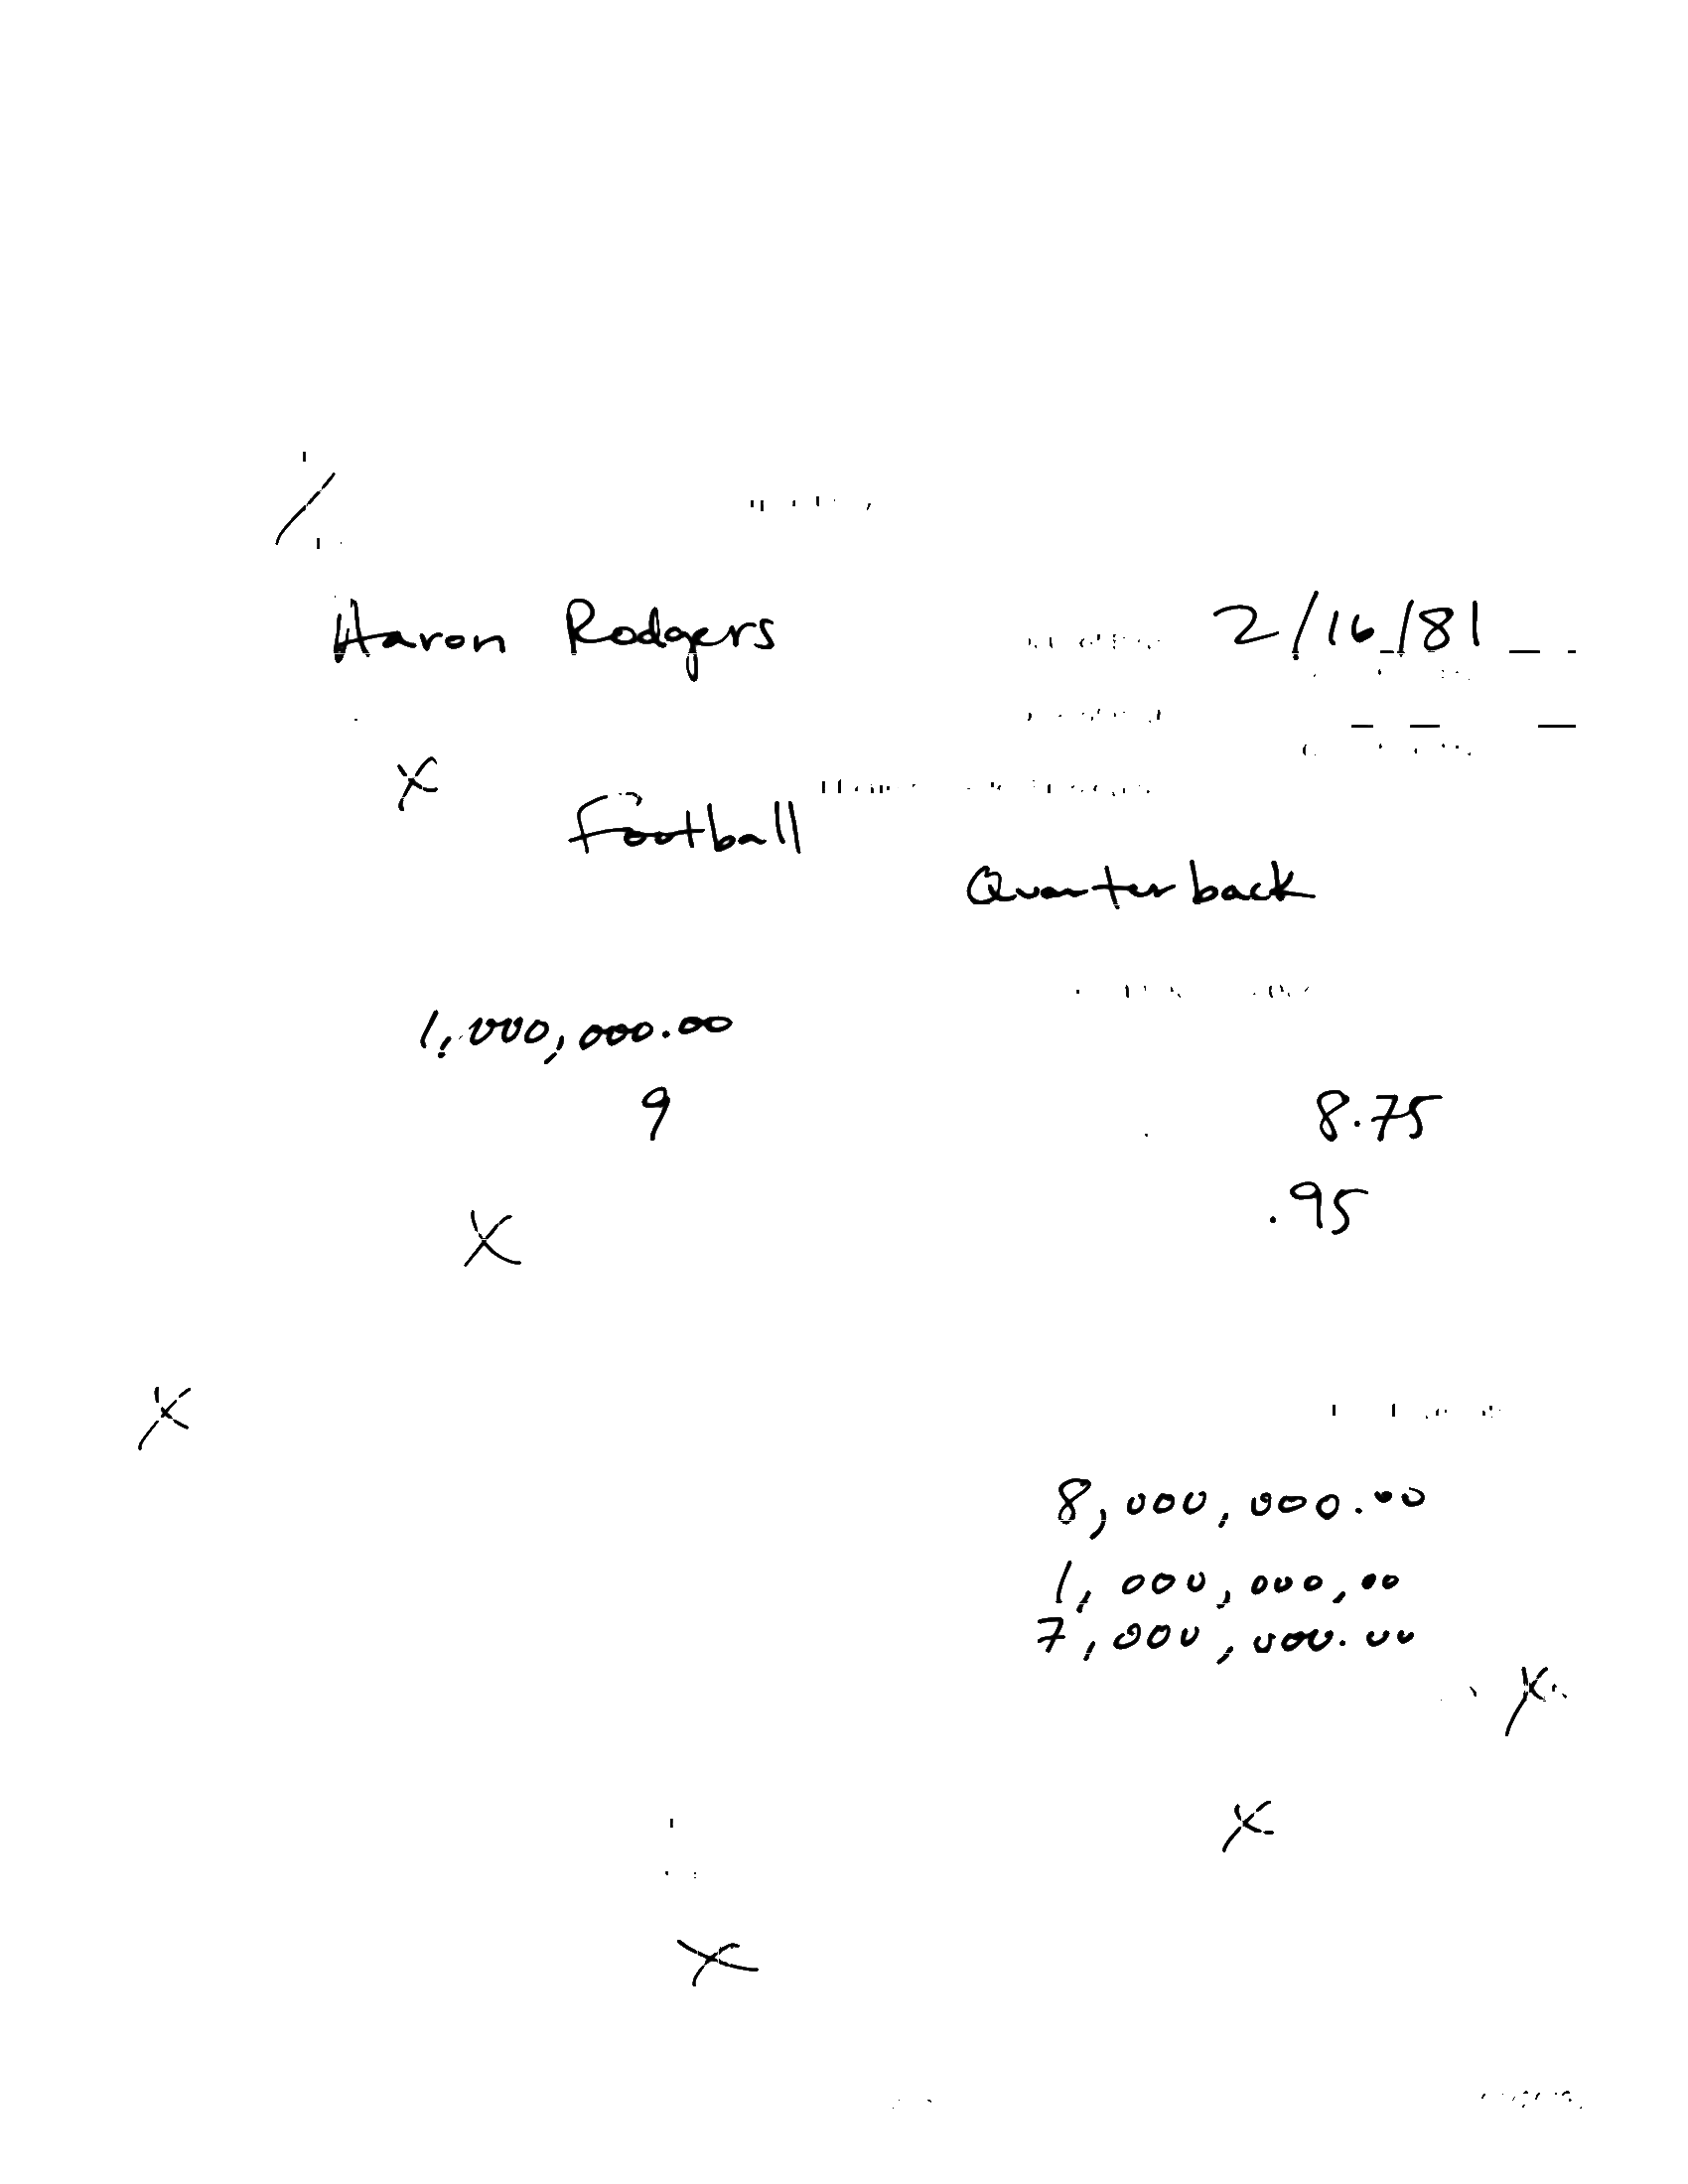 Aaron Rodgers 2/16/81
X
Football
Quarterback
1,000,000.00
9 8.75
.95
X
X
8,000,000.00
1,000,000.00
7,000,000.00
X
X
X